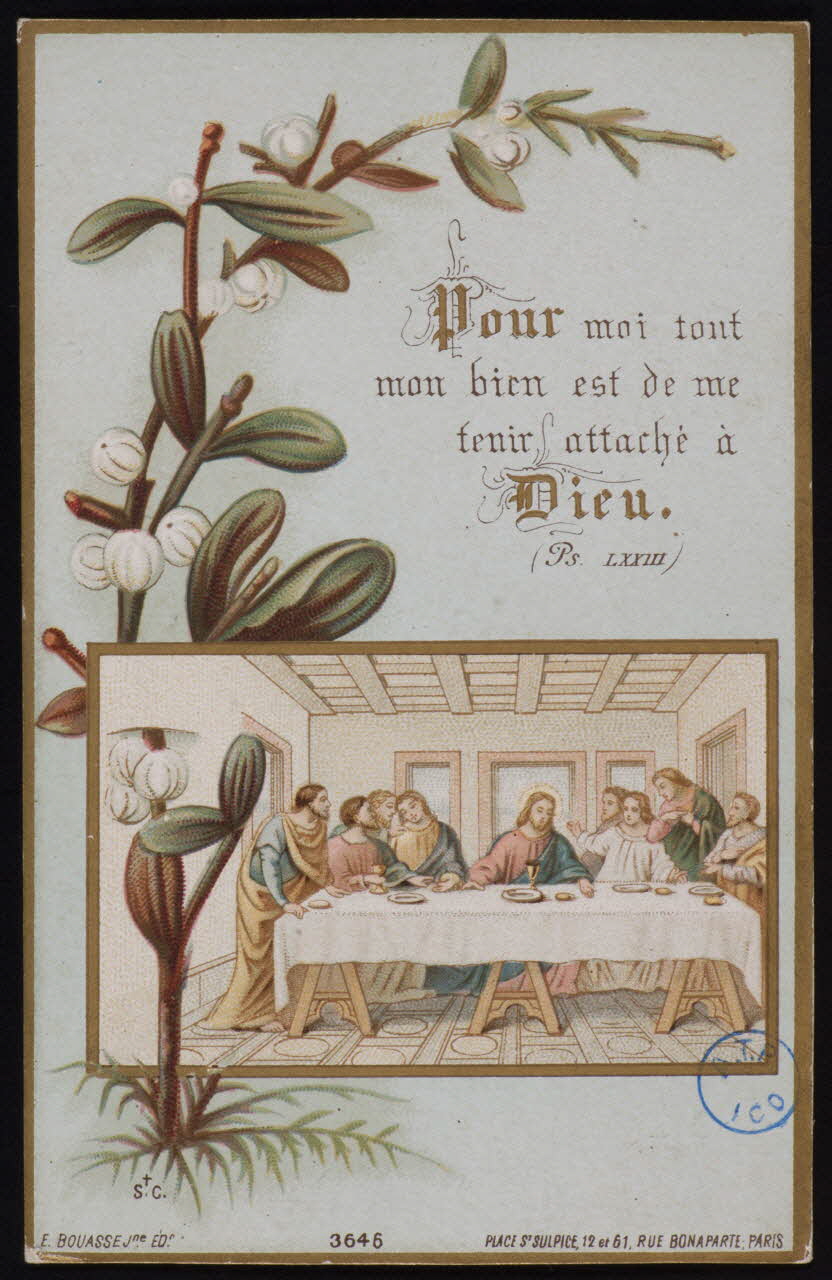 Pour moi tout
mon bien est de me
tenir attaché à
Dieu.
(Ps. LXXIII)
S.C.
E. BOUASSE Jne ÉDr.
3646
PLACE St SULPICE, 12 et 61, RUE BONAPARTE, PARIS
ICO